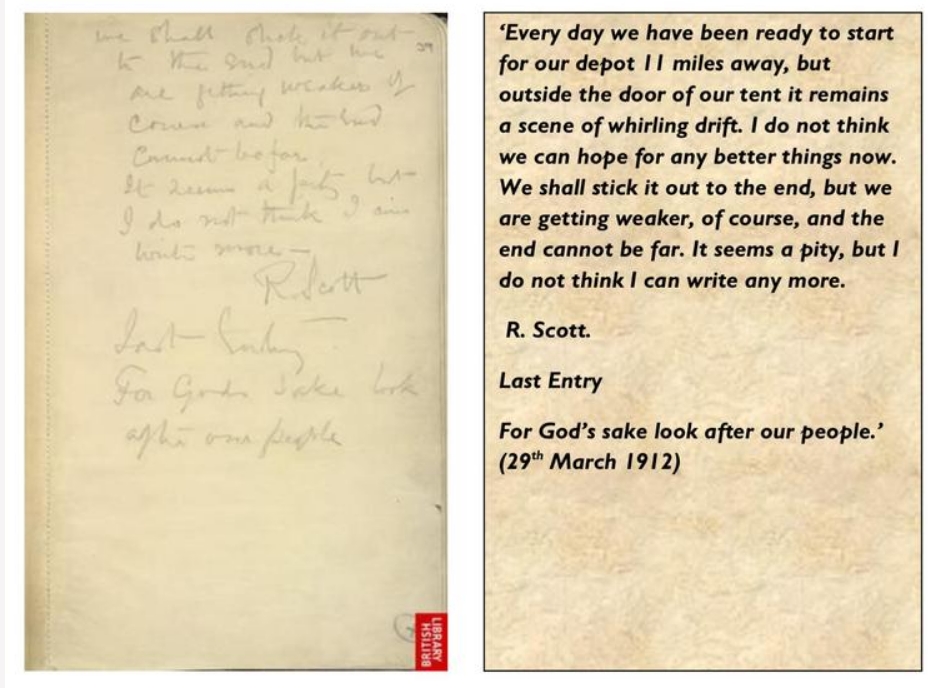 we shall stick it out
39
to the end but we
are getting weaker of
course and the end
cannot be far.
It seems a pity but
I do not think I can
write more —
R. Scott
Last Entry
For Gods sake look
after our people
BRITISH
LIBRARY
‘Every day we have been ready to start
for our depot 11 miles away, but
outside the door of our tent it remains
a scene of whirling drift. I do not think
we can hope for any better things now.
We shall stick it out to the end, but we
are getting weaker, of course, and the
end cannot be far. It seems a pity, but I
do not think I can write any more.
R. Scott.
Last Entry
For God’s sake look after our people.’
(29th March 1912)